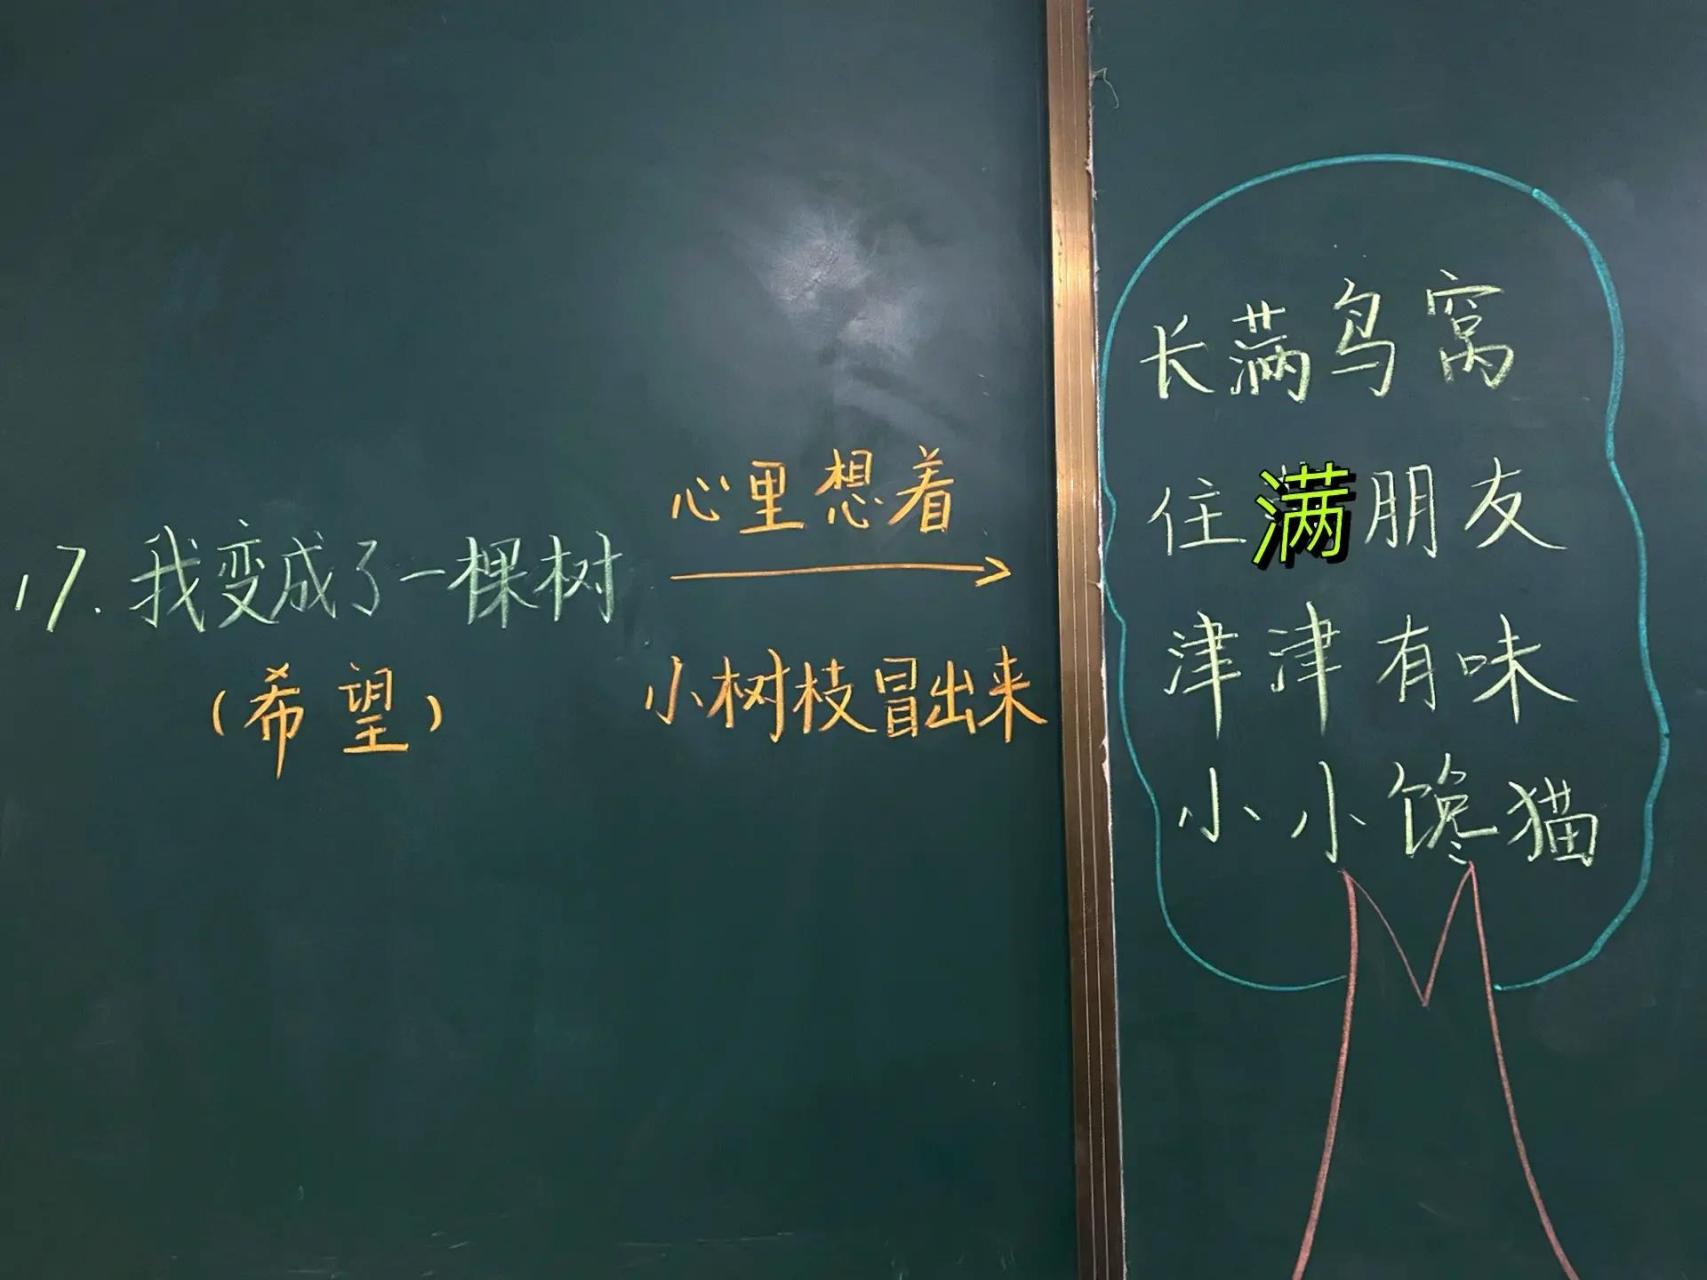 17.我变成了一棵树
(希望)
心里想着
小树枝冒出来
长满鸟窝
住满朋友
津津有味
小小馋猫